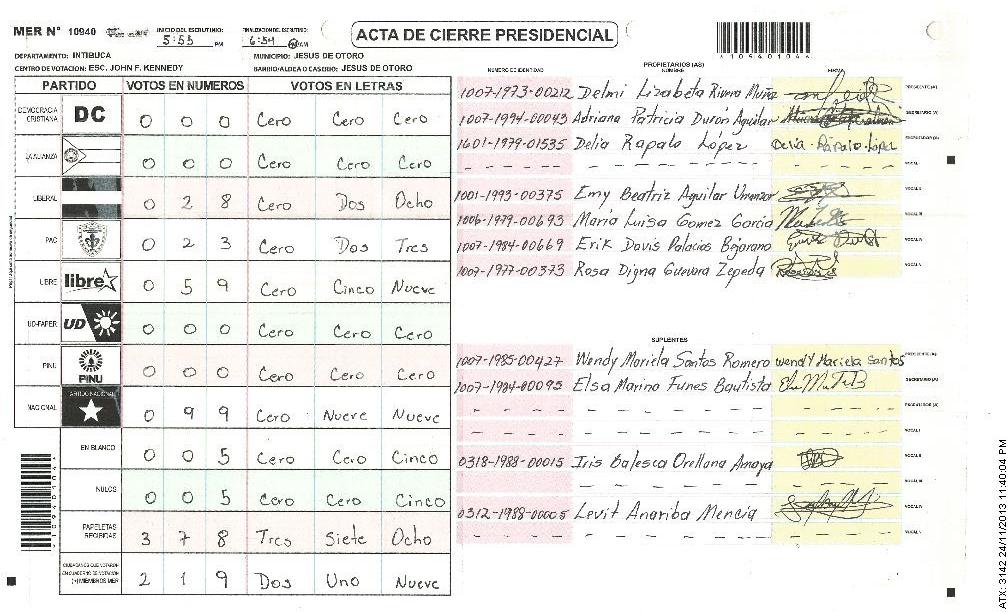 MER N° 10940
INICIO DEL ESCRUTINIO: 5:55 PM
FINALIZACION DEL ESCRUTINIO: 6:54 AM
ACTA DE CIERRE PRESIDENCIAL
DEPARTAMENTO: INTIBUCA
MUNICIPIO: JESUS DE OTORO
CENTRO DE VOTACION: ESC. JOHN F. KENNEDY
BARRIO/ALDEA O CASERIO: JESUS DE OTORO
PARTIDO VOTOS EN NUMEROS VOTOS EN LETRAS
DEMOCRACIA CRISTIANA DC 0 0 0 Cero Cero Cero
LA ALIANZA 0 0 0 Cero Cero Cero
LIBERAL 0 2 8 Cero Dos Ocho
PAC 0 2 3 Cero Dos Tres
LIBRE libre 0 5 9 Cero Cinco Nueve
UD-FAPER UD 0 0 0 Cero Cero Cero
PINU PINU 0 0 0 Cero Cero Cero
NACIONAL PARTIDO NACIONAL 0 9 9 Cero Nueve Nueve
EN BLANCO 0 0 5 Cero Cero Cinco
NULOS 0 0 5 Cero Cero Cinco
PAPELETAS RECIBIDAS 3 7 8 Tres Siete Ocho
CIUDADANOS QUE VOTARON EN CUADERNO DE VOTACION (+) MIEMBROS MER 2 1 9 Dos Uno Nueve
PROPIETARIOS (AS)
NUMERO DE IDENTIDAD NOMBRE FIRMA
1007-1973-00212 Delmi Lizabeta Rivera Muñoz PRESIDENTE (A)
1007-1994-00043 Adriana Patricia Durón Aguilar SECRETARIO (A)
1601-1979-01535 Delia Rapalo López Delia Rápalo López ESCRUTADOR (A)
VOCAL I
1001-1993-00375 Emy Beatriz Aguilar Umanzor VOCAL II
1006-1979-00693 Maria Luisa Gomez Garcia VOCAL III
1007-1984-00669 Erik Davis Palacios Bejarano VOCAL IV
1007-1977-00373 Rosa Digna Guevara Zepeda VOCAL V
SUPLENTES
1007-1985-00427 Wendy Mariela Santos Romero wendy Mariela Santos PRESIDENTE (A)
1007-1984-00095 Elsa Marina Funes Bautista SECRETARIO (A)
ESCRUTADOR (A)
VOCAL I
0318-1988-00015 Iris Balesca Orellana Amaya VOCAL II
VOCAL III
0312-1988-00005 Levit Anariba Mencia VOCAL IV
VOCAL V
ATX: 3142 24/11/2013 11:40:04 PM